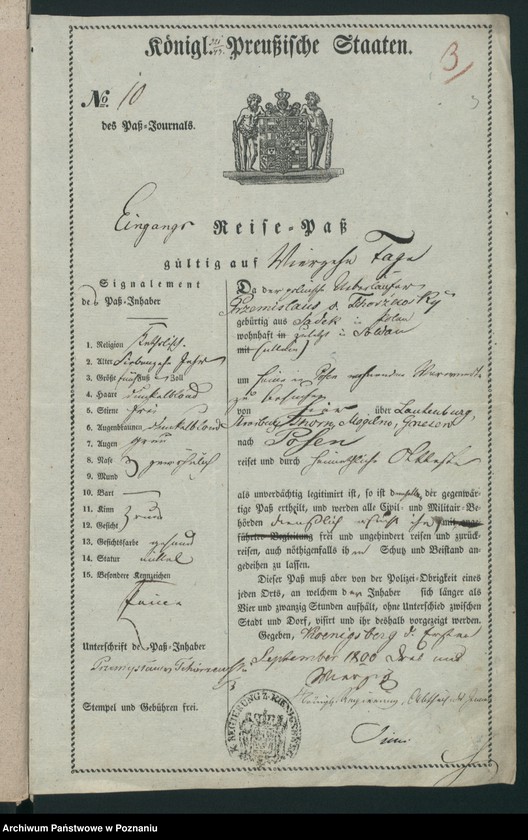 Königl. Preußische Staaten.
3
No. 10
des Paß-Journals.
Eingangs Reise-Paß
gültig auf Vierzehn Tage
Signalement
des Paß-Inhaber
1. Religion Katholisch
2. Alter Siebenzehn Jahr
3. Größe fünf Fuß Zoll
4. Haare dunkelblond
5. Stirne frei
6. Augenbraunen dunkelblond
7. Augen grau
8. Nase gewöhnlich
9. Mund
10. Bart —
11. Kinn rund
12. Gesicht
13. Gesichtsfarbe gesund
14. Statur mittel
15. Besondere Kennzeichen
keine
Unterschrift des Paß-Inhaber
Stempel und Gebühren frei.
Da der polnische Ueberläufer
Przemislaus v.
gebürtig aus Sadek in Polen
wohnhaft in zuletzt in Soldau
mit
um seine in Posen wohnenden
zu besuchen
von hier über Lautenburg,
Strasburg, Thorn, Mogilno, Gnesen
nach Posen
reiset und durch
als unverdächtig legitimirt ist, so ist demselben der gegenwär-
tige Paß ertheilt, und werden alle Civil- und Militair-Be-
hörden dienstlich ersucht ihn mit ange-
führter Begleitung frei und ungehindert reisen und zurück-
reisen, auch nöthigenfalls ihm Schutz und Beistand an-
gedeihen zu lassen.
Dieser Paß muß aber von der Polizei-Obrigkeit eines
jeden Orts, an welchem der Inhaber sich länger als
Vier und zwanzig Stunden aufhält, ohne Unterschied zwischen
Stadt und Dorf, visirt und ihr deshalb vorgezeigt werden.
Gegeben, Koenigsberg d. Ersten
September 1800 Drei und
Königl. Regierung, Abtheil. des Innern
K. REGIERUNG Z. KOENIGSBERG
Archiwum Państwowe w Poznaniu